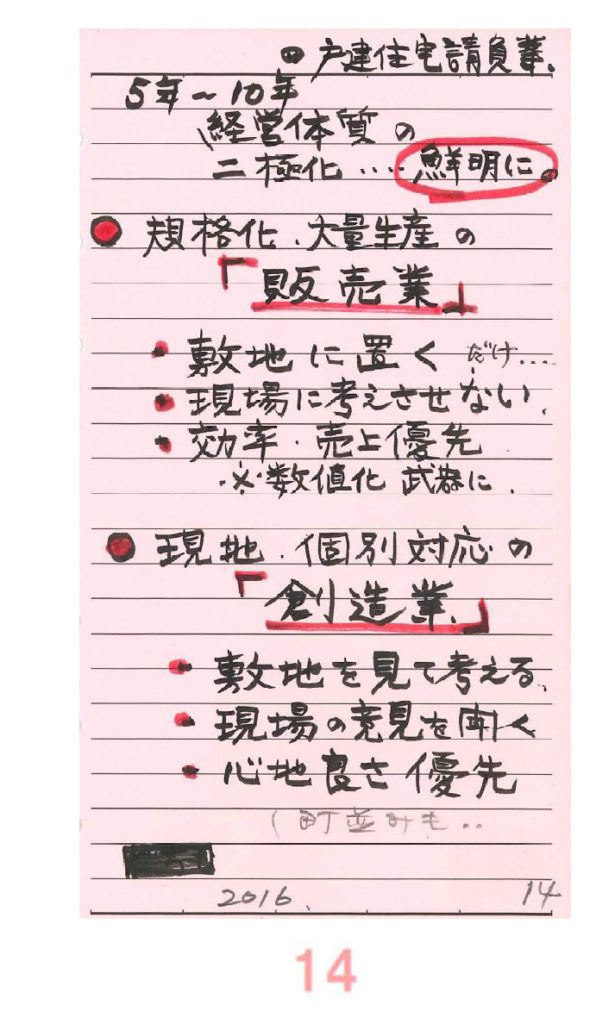 戸建住宅請負業.
5年～10年
経営体質の
二極化‥‥鮮明に。
● 規格化.大量生産の
「販売業」
・敷地に置くだけ…
・現場に考えさせない.
・効率・売上優先
※数値化 武器に.
● 現地.個別対応の
「創造業.」
・敷地を見て考える.
・現場の意見を聞く
・心地良さ優先
(町並みも..
2016.
14
14